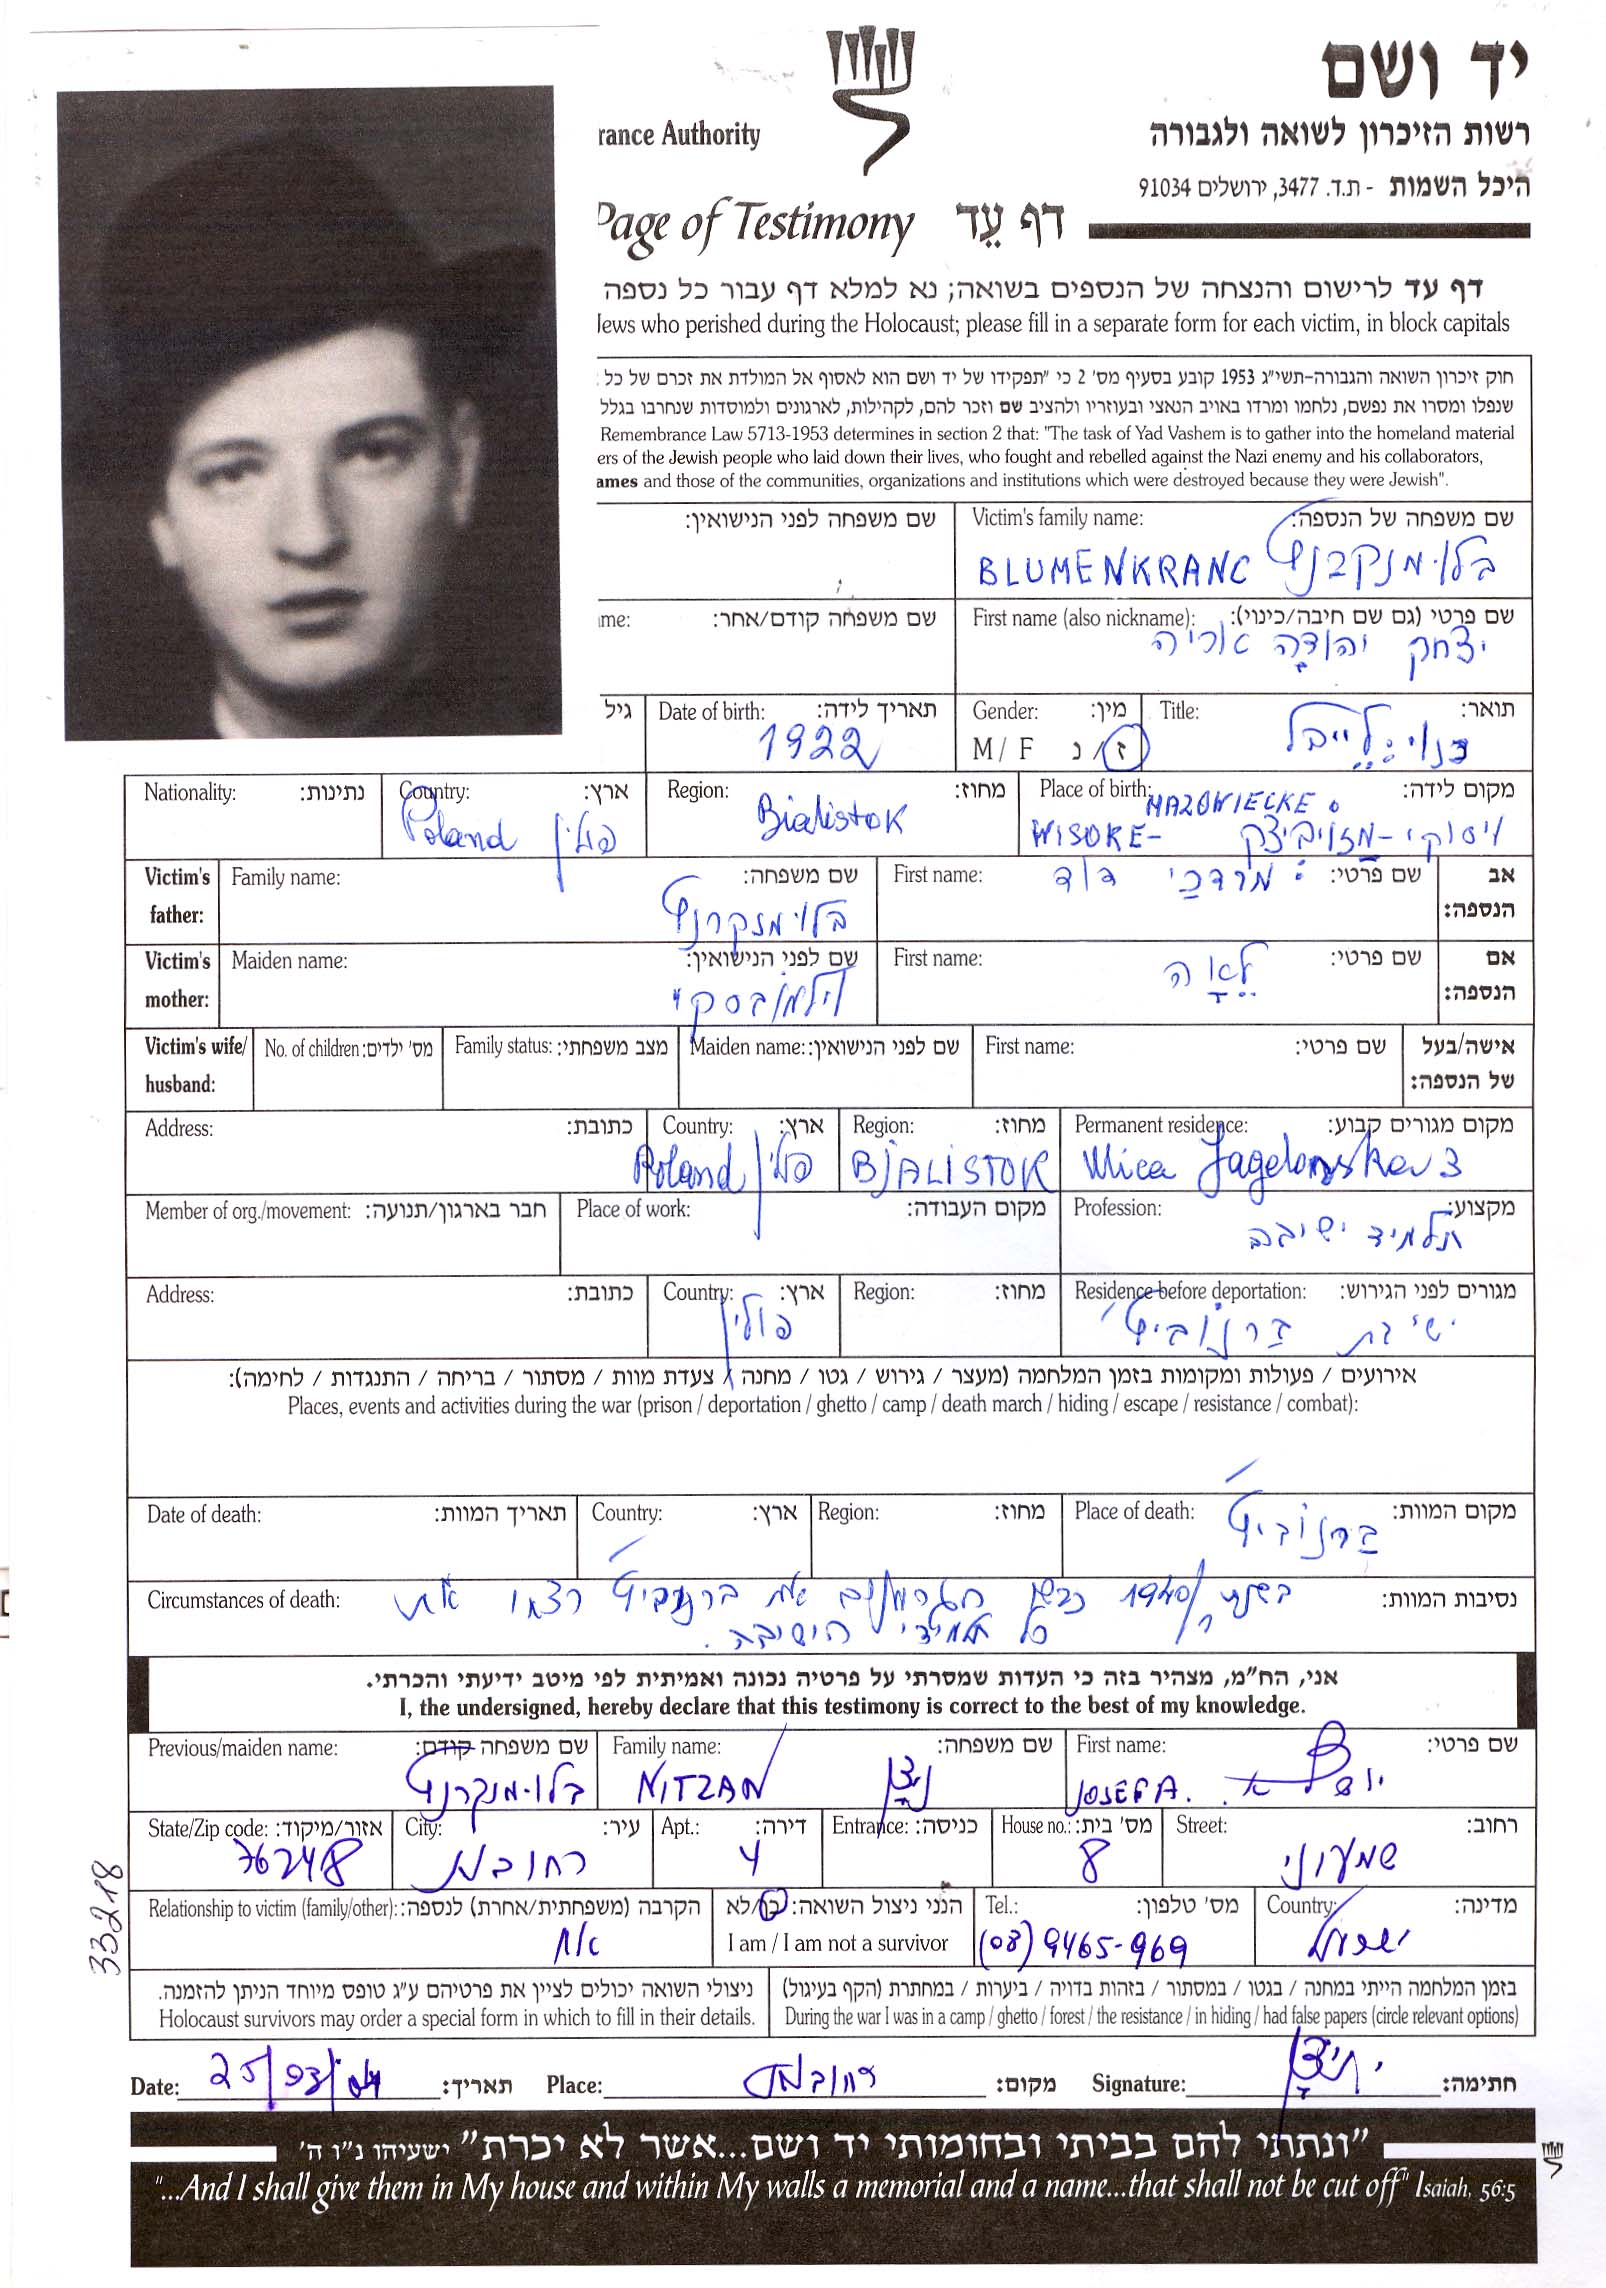 יד ושם
רשות הזיכרון לשואה ולגבורה
rance Authority
היכל השמות - ת.ד. 3477, ירושלים 91034
Page of Testimony דף עֵד
דף עד לרישום והנצחה של הנספים בשואה; נא למלא דף עבור כל נספה
Jews who perished during the Holocaust; please fill in a separate form for each victim, in block capitals
חוק זיכרון השואה והגבורה-תשי"ג 1953 קובע בסעיף מס' 2 כי "תפקידו של יד ושם הוא לאסוף אל המולדת את זכרם של כל
שנפלו ומסרו את נפשם, נלחמו ומרדו באויב הנאצי ובעוזריו ולהציב שם וזכר להם, לקהילות, לארגונים ולמוסדות שנחרבו בגלל
Remembrance Law 5713-1953 determines in section 2 that: "The task of Yad Vashem is to gather into the homeland material
ers of the Jewish people who laid down their lives, who fought and rebelled against the Nazi enemy and his collaborators,
ames and those of the communities, organizations and institutions which were destroyed because they were Jewish".
Victim's family name: שם משפחה של הנספה:
BLUMENKRANC בלומנקרנץ
שם משפחה לפני הנישואין:
First name (also nickname): שם פרטי (גם שם חיבה/כינוי):
יצחק יהודה אריה
ime: שם משפחה קודם/אחר:
Title: תואר:
כנוי: לייבל
Gender: מין:
M / F ז / נ
Date of birth: תאריך לידה:
1922
גיל
Place of birth: מקום לידה:
MAZOWIECKE
WISOKE- ויסוקי-מזוביצק
Region: מחוז:
Bialistok
Country: ארץ:
Poland פולין
Nationality: נתינות:
Victim's father: אב הנספה:
First name: שם פרטי:
מרדכי דוד
Family name: שם משפחה:
בלומנקרנץ
Victim's mother: אם הנספה:
First name: שם פרטי:
לאה
Maiden name: שם לפני הנישואין:
Victim's wife/ husband: אישה/בעל של הנספה:
First name: שם פרטי:
Maiden name: שם לפני הנישואין:
Family status: מצב משפחתי:
No. of children: מס' ילדים:
Permanent residence: מקום מגורים קבוע:
Region: מחוז:
BJALISTOK
Country: ארץ:
Poland פולין
Address: כתובת:
Profession: מקצוע:
תלמיד ישיבה
Place of work: מקום העבודה:
Member of org./movement: חבר בארגון/תנועה:
Residence before deportation: מגורים לפני הגירוש:
ישיבת ברנוביץ'
Region: מחוז:
Country: ארץ:
פולין
Address: כתובת:
אירועים / פעולות ומקומות בזמן המלחמה (מעצר / גירוש / גטו / מחנה / צעדת מוות / מסתור / בריחה / התנגדות / לחימה):
Places, events and activities during the war (prison / deportation / ghetto / camp / death march / hiding / escape / resistance / combat):
Place of death: מקום המוות:
ברנוביץ'
Region: מחוז:
Country: ארץ:
Date of death: תאריך המוות:
Circumstances of death: נסיבות המוות:
בשנת 1940 כבשו הגרמנים את ברנוביץ' רצחו את
כל תלמידי הישיבה.
אני, הח"מ, מצהיר בזה כי העדות שמסרתי על פרטיה נכונה ואמיתית לפי מיטב ידיעתי והכרתי.
I, the undersigned, hereby declare that this testimony is correct to the best of my knowledge.
First name: שם פרטי:
JOSEF A.
Family name: שם משפחה:
NITZAN ניצן
Previous/maiden name: שם משפחה קודם:
בלומנקרנץ
Street: רחוב:
שמעוני
House no.: מס' בית:
8
Entrance: כניסה:
Apt.: דירה:
4
City: עיר:
רחובות
State/Zip code: אזור/מיקוד:
76248
Country: מדינה:
ישראל
Tel.: מס' טלפון:
(08) 9465-969
הנני ניצול השואה: כן/לא
I am / I am not a survivor
Relationship to victim (family/other): הקרבה (משפחתית/אחרת) לנספה:
אח
33218
בזמן המלחמה הייתי במחנה / בגטו / במסתור / בזהות בדויה / ביערות / במחתרת (הקף בעיגול)
During the war I was in a camp / ghetto / forest / the resistance / in hiding / had false papers (circle relevant options)
ניצולי השואה יכולים לציין את פרטיהם ע"ג טופס מיוחד הניתן להזמנה.
Holocaust survivors may order a special form in which to fill in their details.
Date: 25/03/04 תאריך: Place: רחובות מקום: Signature: י. ניצן חתימה:
"ונתתי להם בביתי ובחומותי יד ושם...אשר לא יכרת" ישעיהו נ"ו ה'
"...And I shall give them in My house and within My walls a memorial and a name...that shall not be cut off" Isaiah, 56:5